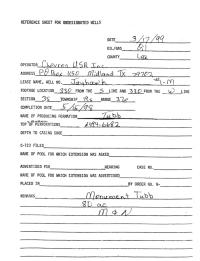 REFERENCE SHEET FOR UNDESIGNATED WELLS
DATE 3/17/99
OIL/GAS Oil
COUNTY Lea
OPERATOR Chevron USA Inc
ADDRESS P O Box 1150 Midland TX 79702
LEASE NAME, WELL NO. #1-M
FOOTAGE LOCATION 330 FROM THE S LINE AND 330 FROM THE W LINE
SECTION TOWNSHIP 19s RANGE
COMPLETION DATE
NAME OF PRODUCING FORMATION Tubb
TOP OF PERFORATIONS
DEPTH TO CASING SHOE
C-123 FILED
NAME OF POOL FOR WHICH EXTENSION WAS ASKED
ADVERTISED FOR HEARING CASE NO.
NAME OF POOL FOR WHICH EXTENSION WAS ADVERTISED
PLACED IN BY ORDER NO. R-
REMARKS Monument Tubb
80 ac